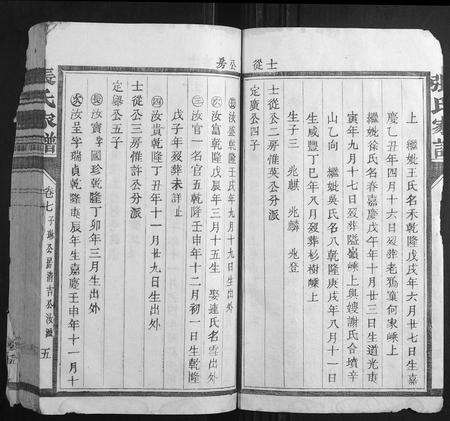 士從公房
張氏家譜
上 繼妣王氏名禾乾隆戊戌年六月廿七日生嘉
慶乙丑年四月十六日歿葬老鴉窠何家嵊上
繼妣徐氏名春嘉慶戊午年十月廿三日生道光庚
寅年九月十七日歿葬嵊上與嫂謝氏合墳辛
山乙向 繼妣吳氏名八乾隆庚戌年八月十一日
生咸豐丁巳年八月歿葬杉樹嵊上
生子三 兆麒 兆麟 兆登
士從公二房惟英公分派
定慶公四子
汝盛乾隆壬戌年九月十九日生出外
汝富乾隆戊辰年三月十五生 娶連氏名雪出外
汝官一名官五乾隆壬申年十二月初一日生乾隆
戊子年歿葬未詳
汝貴乾隆丁丑年十一月廿九日生出外
士從公三房惟許公分派
定公五子
長 汝寶字國珍乾隆丁卯年三月生出外
次 汝呈字瑞貞乾隆庚辰年生嘉慶壬申年十一月十
張氏家譜
卷七
五